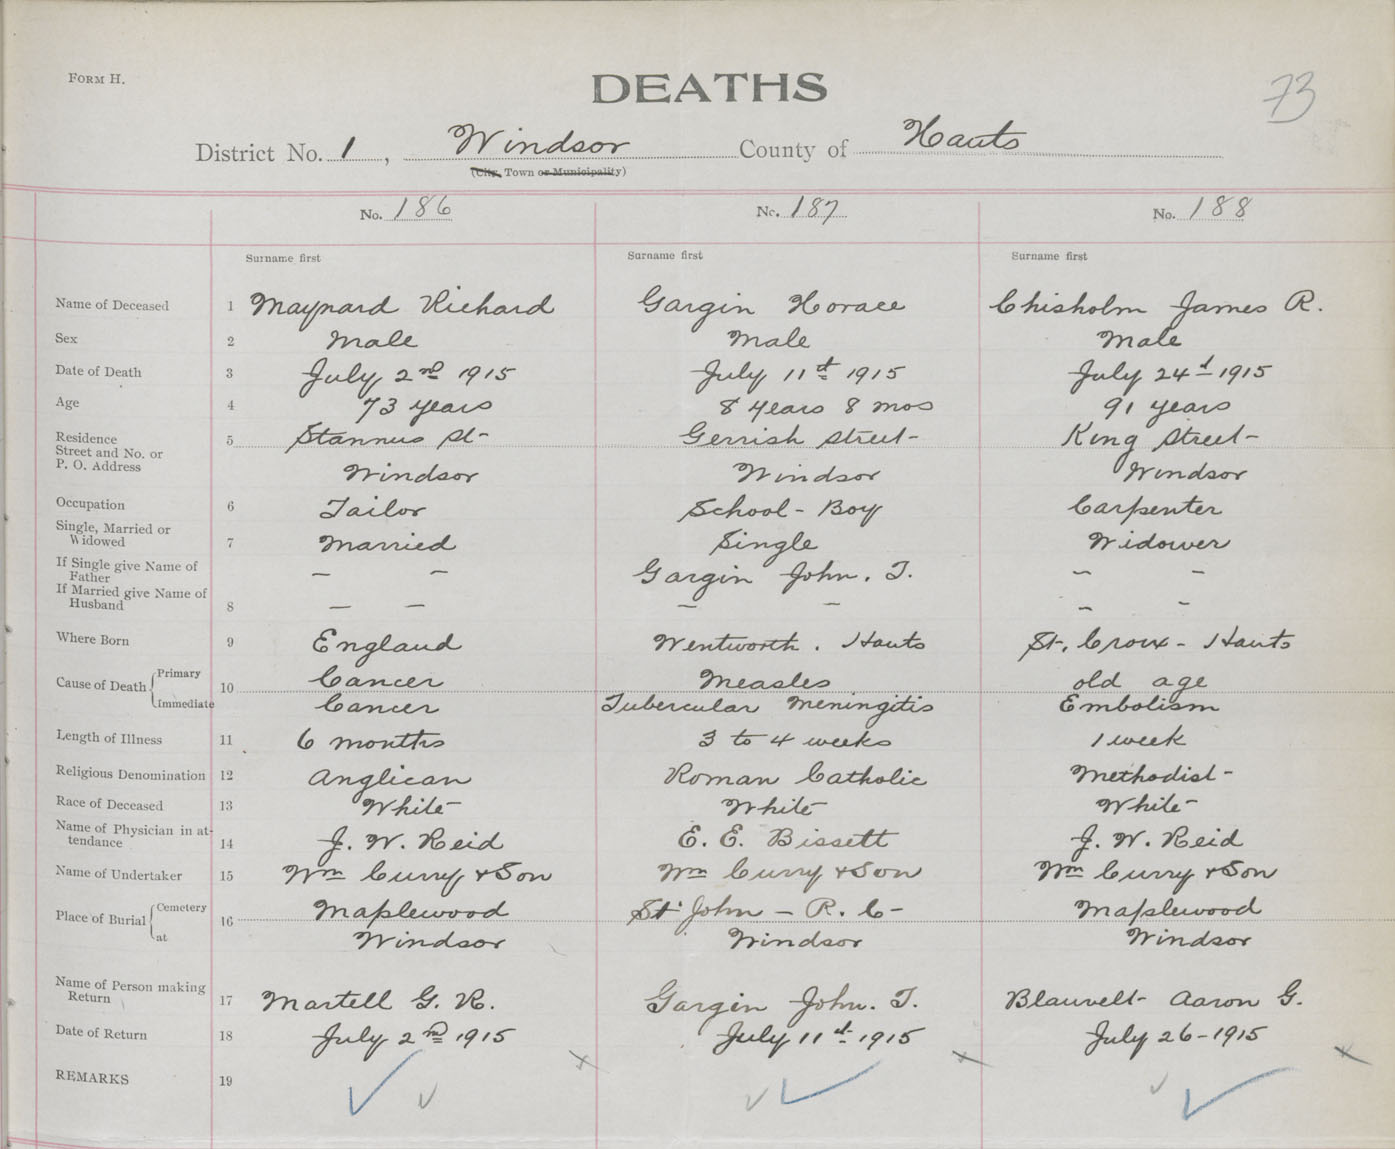 FORM H.
DEATHS
73
District No. 1, Windsor County of Hants
(City, Town or Municipality)
No. 186 No. 187 No. 188
Surname first Surname first Surname first
Name of Deceased 1 Maynard Richard Gargin Horace Chisholm James R.
Sex 2 Male Male Male
Date of Death 3 July 2nd 1915 July 11st 1915 July 24st 1915
Age 4 73 years 8 years 8 mos 91 years
Residence
Street and No. or 5 Stannus St- Gerrish Street- King Street-
P. O. Address Windsor Windsor Windsor
Occupation 6 Tailor School-Boy Carpenter
Single, Married or
Widowed 7 Married Single Widower
If Single give Name of
Father — — Gargin John. T. — —
If Married give Name of
Husband 8 — — — — — —
Where Born 9 England Wentworth. Hants St. Croix - Hants
Cause of Death Primary 10 Cancer Measles old age
Immediate Cancer Tubercular Meningitis Embolism
Length of Illness 11 6 months 3 to 4 weeks 1 week
Religious Denomination 12 Anglican Roman Catholic Methodist-
Race of Deceased 13 White White White
Name of Physician in at-
tendance 14 J. W. Reid E. E. Bissett J. W. Reid
Name of Undertaker 15 Wm Curry & Son Wm Curry & Son Wm Curry & Son
Place of Burial Cemetery 16 Maplewood St John - R. C- Maplewood
at Windsor Windsor Windsor
Name of Person making
Return 17 Martell G. R. Gargin John. T. Blauvelt- Aaron G.
Date of Return 18 July 2nd 1915 July 11st 1915 July 26-1915
REMARKS 19